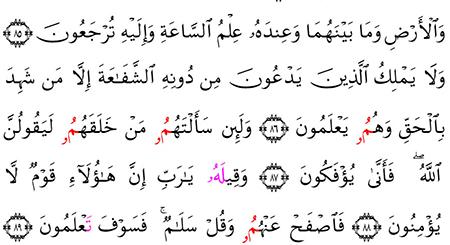 وَٱلْأَرْضِ وَمَا بَيْنَهُمَا وَعِندَهُۥ عِلْمُ ٱلسَّاعَةِ وَإِلَيْهِ تُرْجَعُونَ ۝٨٥
وَلَا يَمْلِكُ ٱلَّذِينَ يَدْعُونَ مِن دُونِهِ ٱلشَّفَٰعَةَ إِلَّا مَن شَهِدَ
بِٱلْحَقِّ وَهُمُۥ يَعْلَمُونَ ۝٨٦ وَلَئِن سَأَلْتَهُمُۥ مَنْ خَلَقَهُمُۥ لَيَقُولُنَّ
ٱللَّهُ ۖ فَأَنَّىٰ يُؤْفَكُونَ ۝٨٧ وَقِيلَهُۥ يَٰرَبِّ إِنَّ هَٰٓؤُلَآءِ قَوْمٌ لَّا
يُؤْمِنُونَ ۝٨٨ فَٱصْفَحْ عَنْهُمُۥ وَقُلْ سَلَٰمٌ ۚ فَسَوْفَ تَعْلَمُونَ ۝٨٩